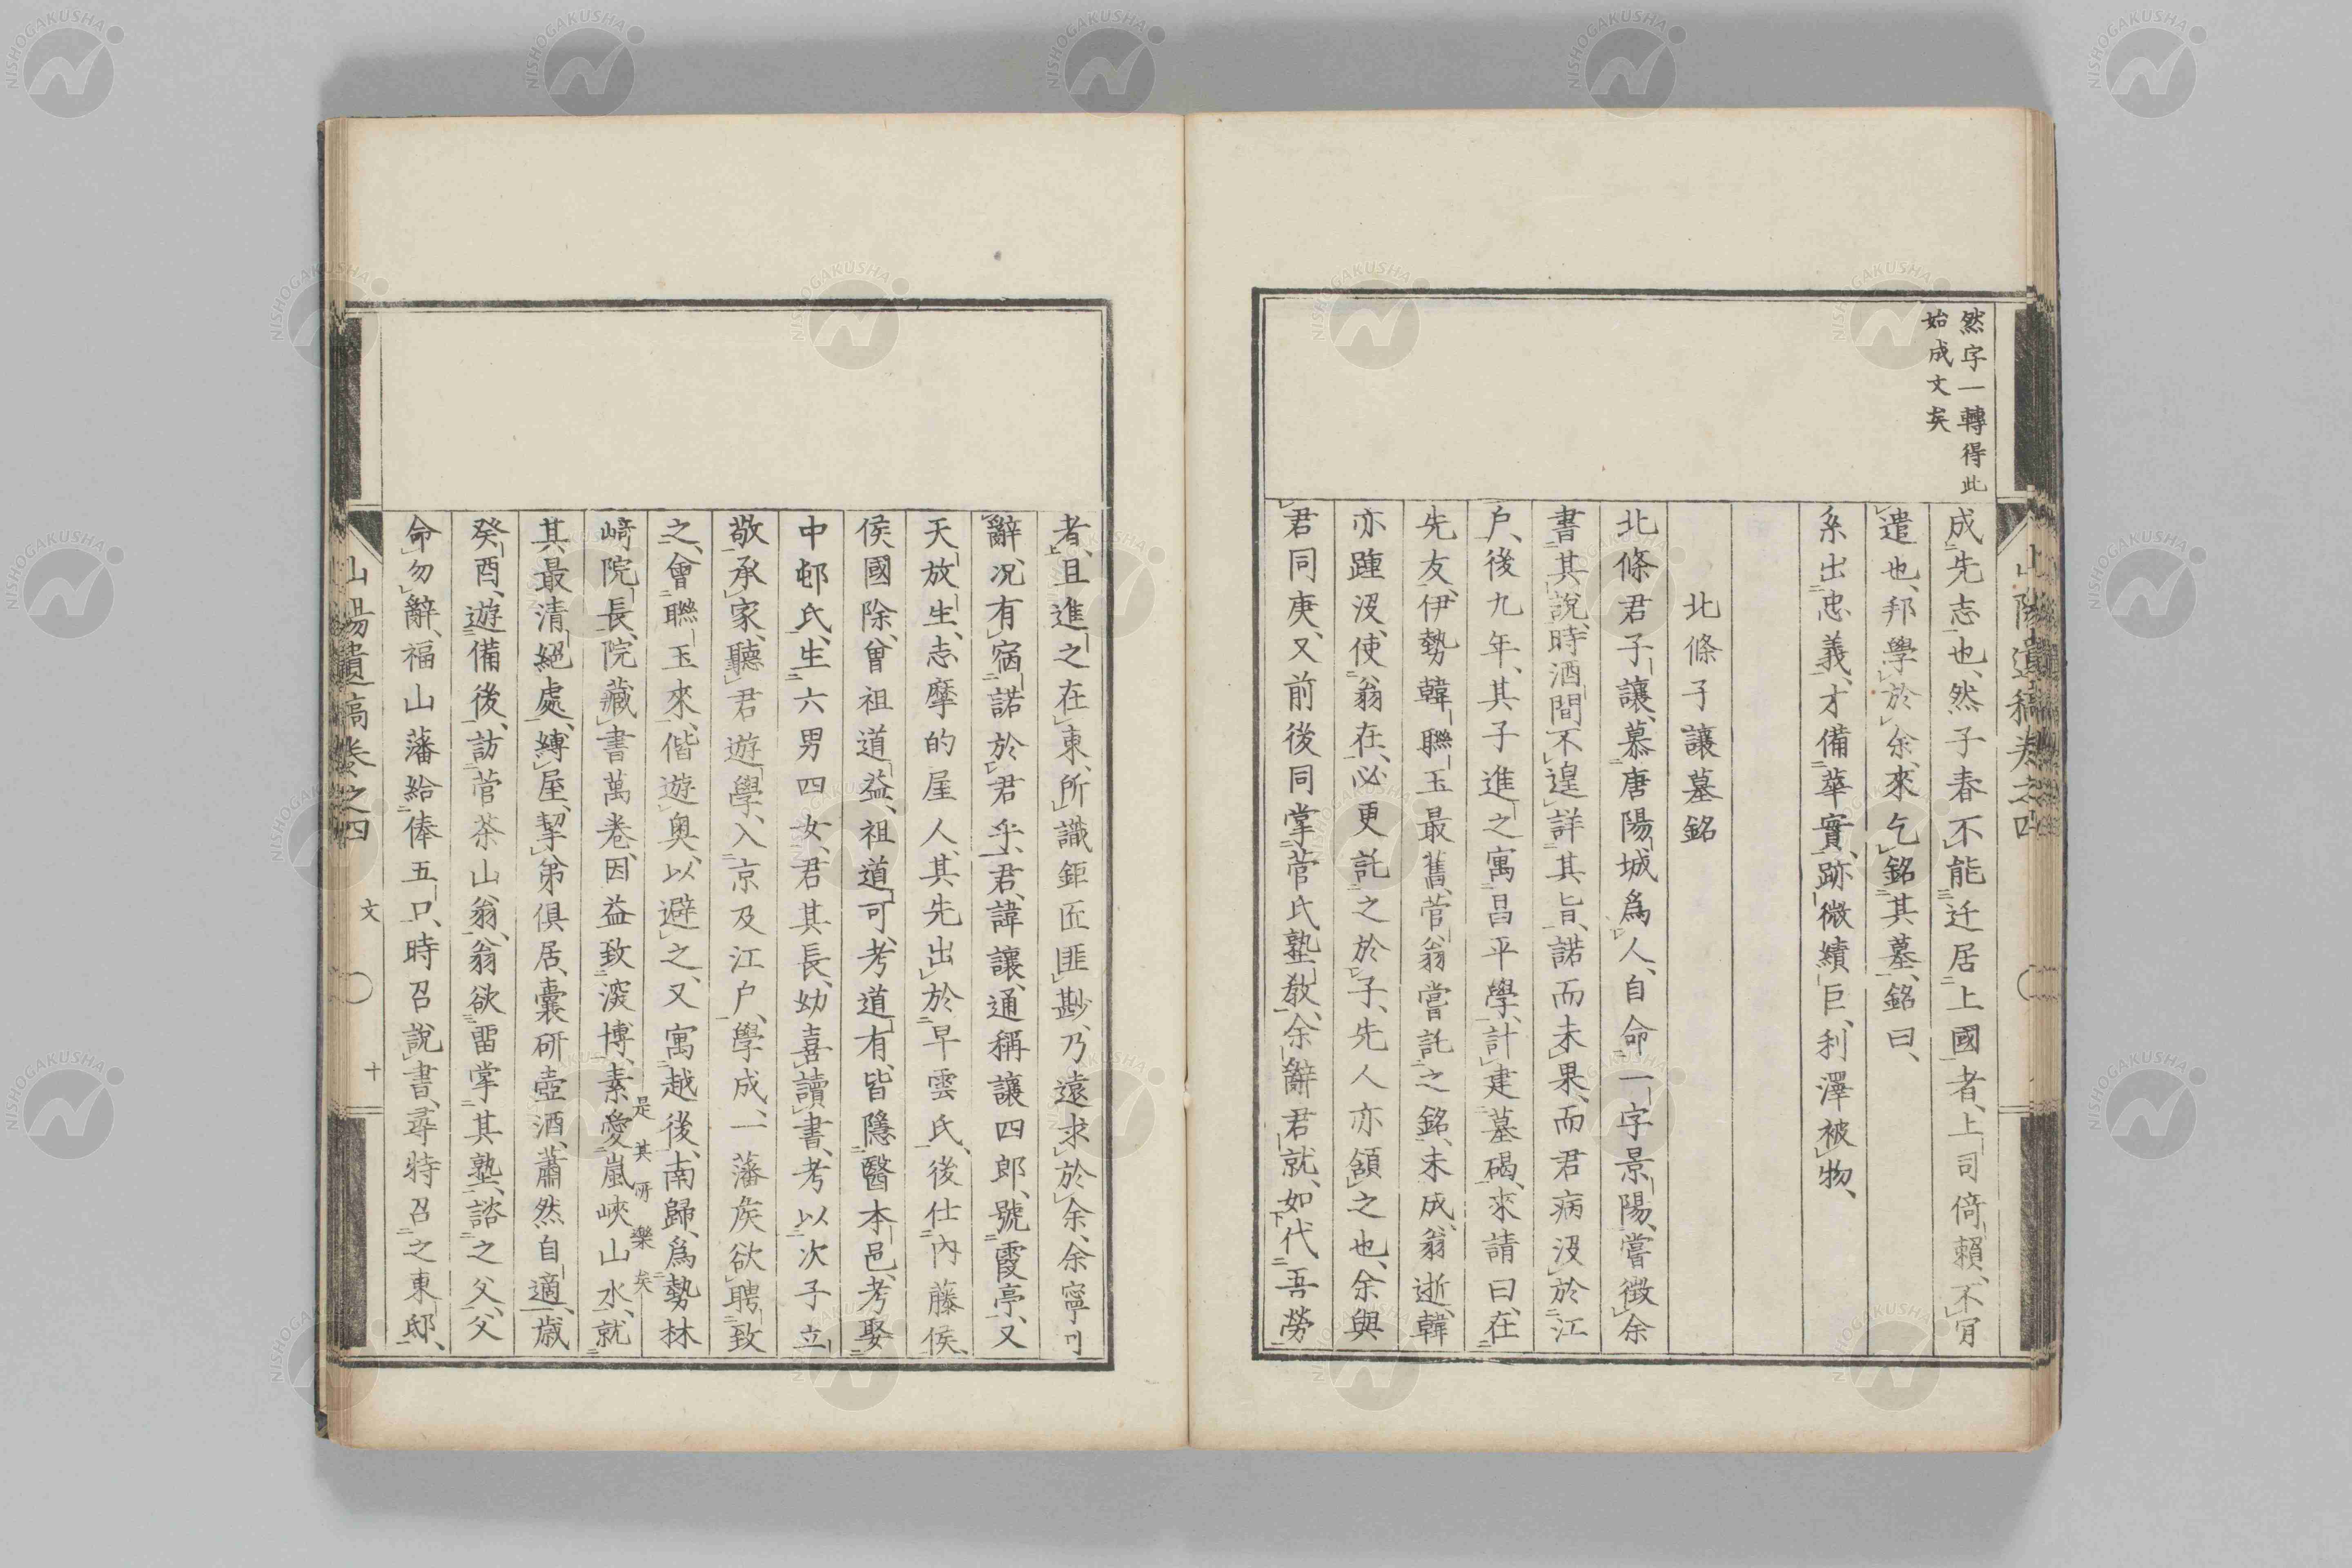 然字一轉得此
始成文矣
山陽遺稿卷之四
成先志也、然子春不能迁居上國者、上司倚賴、不肯
遣也、邦學於余、來乞銘其墓、銘曰、
系出忠義、才備華實、跡微績巨、利澤被物、
北條子讓墓銘
北條君子讓、慕唐陽城爲人、自命一字景陽、嘗徵余
書其說、時酒間不遑詳其旨、諾而未果、而君病沒於江
戶、後九年、其子進之寓昌平學、計建墓碣、來請曰、在
先友、伊勢韓聯玉最舊、菅翁嘗託之銘、未成、翁逝、韓
亦踵沒、使翁在、必更託之於子、先人亦頷之也、余與
君同庚、又前後同掌菅氏塾教、余辭君就、如代吾勞
者、且進之在東、所識鉅匠匪尠、乃遠求於余、余寧可
辭、况有宿諾於君乎、君、諱讓、通稱讓四郎、號霞亭、又
天放生、志摩的屋人、其先出於早雲氏、後仕內藤侯、
侯國除、曾祖道益、祖道可、考道有、皆隱醫本邑、考娶
中邨氏、生六男四女、君其長、幼喜讀書、考以次子立
敬承家、聽君遊學、入京及江戶、學成、一藩矦欲聘致
之、會聯玉來、偕遊奥、以避之、又寓越後、南歸、爲勢林
是其所樂矣
﨑院長、院藏書萬卷、因益致深博、素愛嵐峽山水、就
其最清絕處、縛屋、挈弟俱居、囊硏壺酒、蕭然自適、歳
癸酉、遊備後、訪菅茶山翁、翁欲留掌其塾、諮之父、父
命勿辭、福山藩給俸五口、時召說書、尋特召之東邸、
山陽遺稿卷之四
文
十